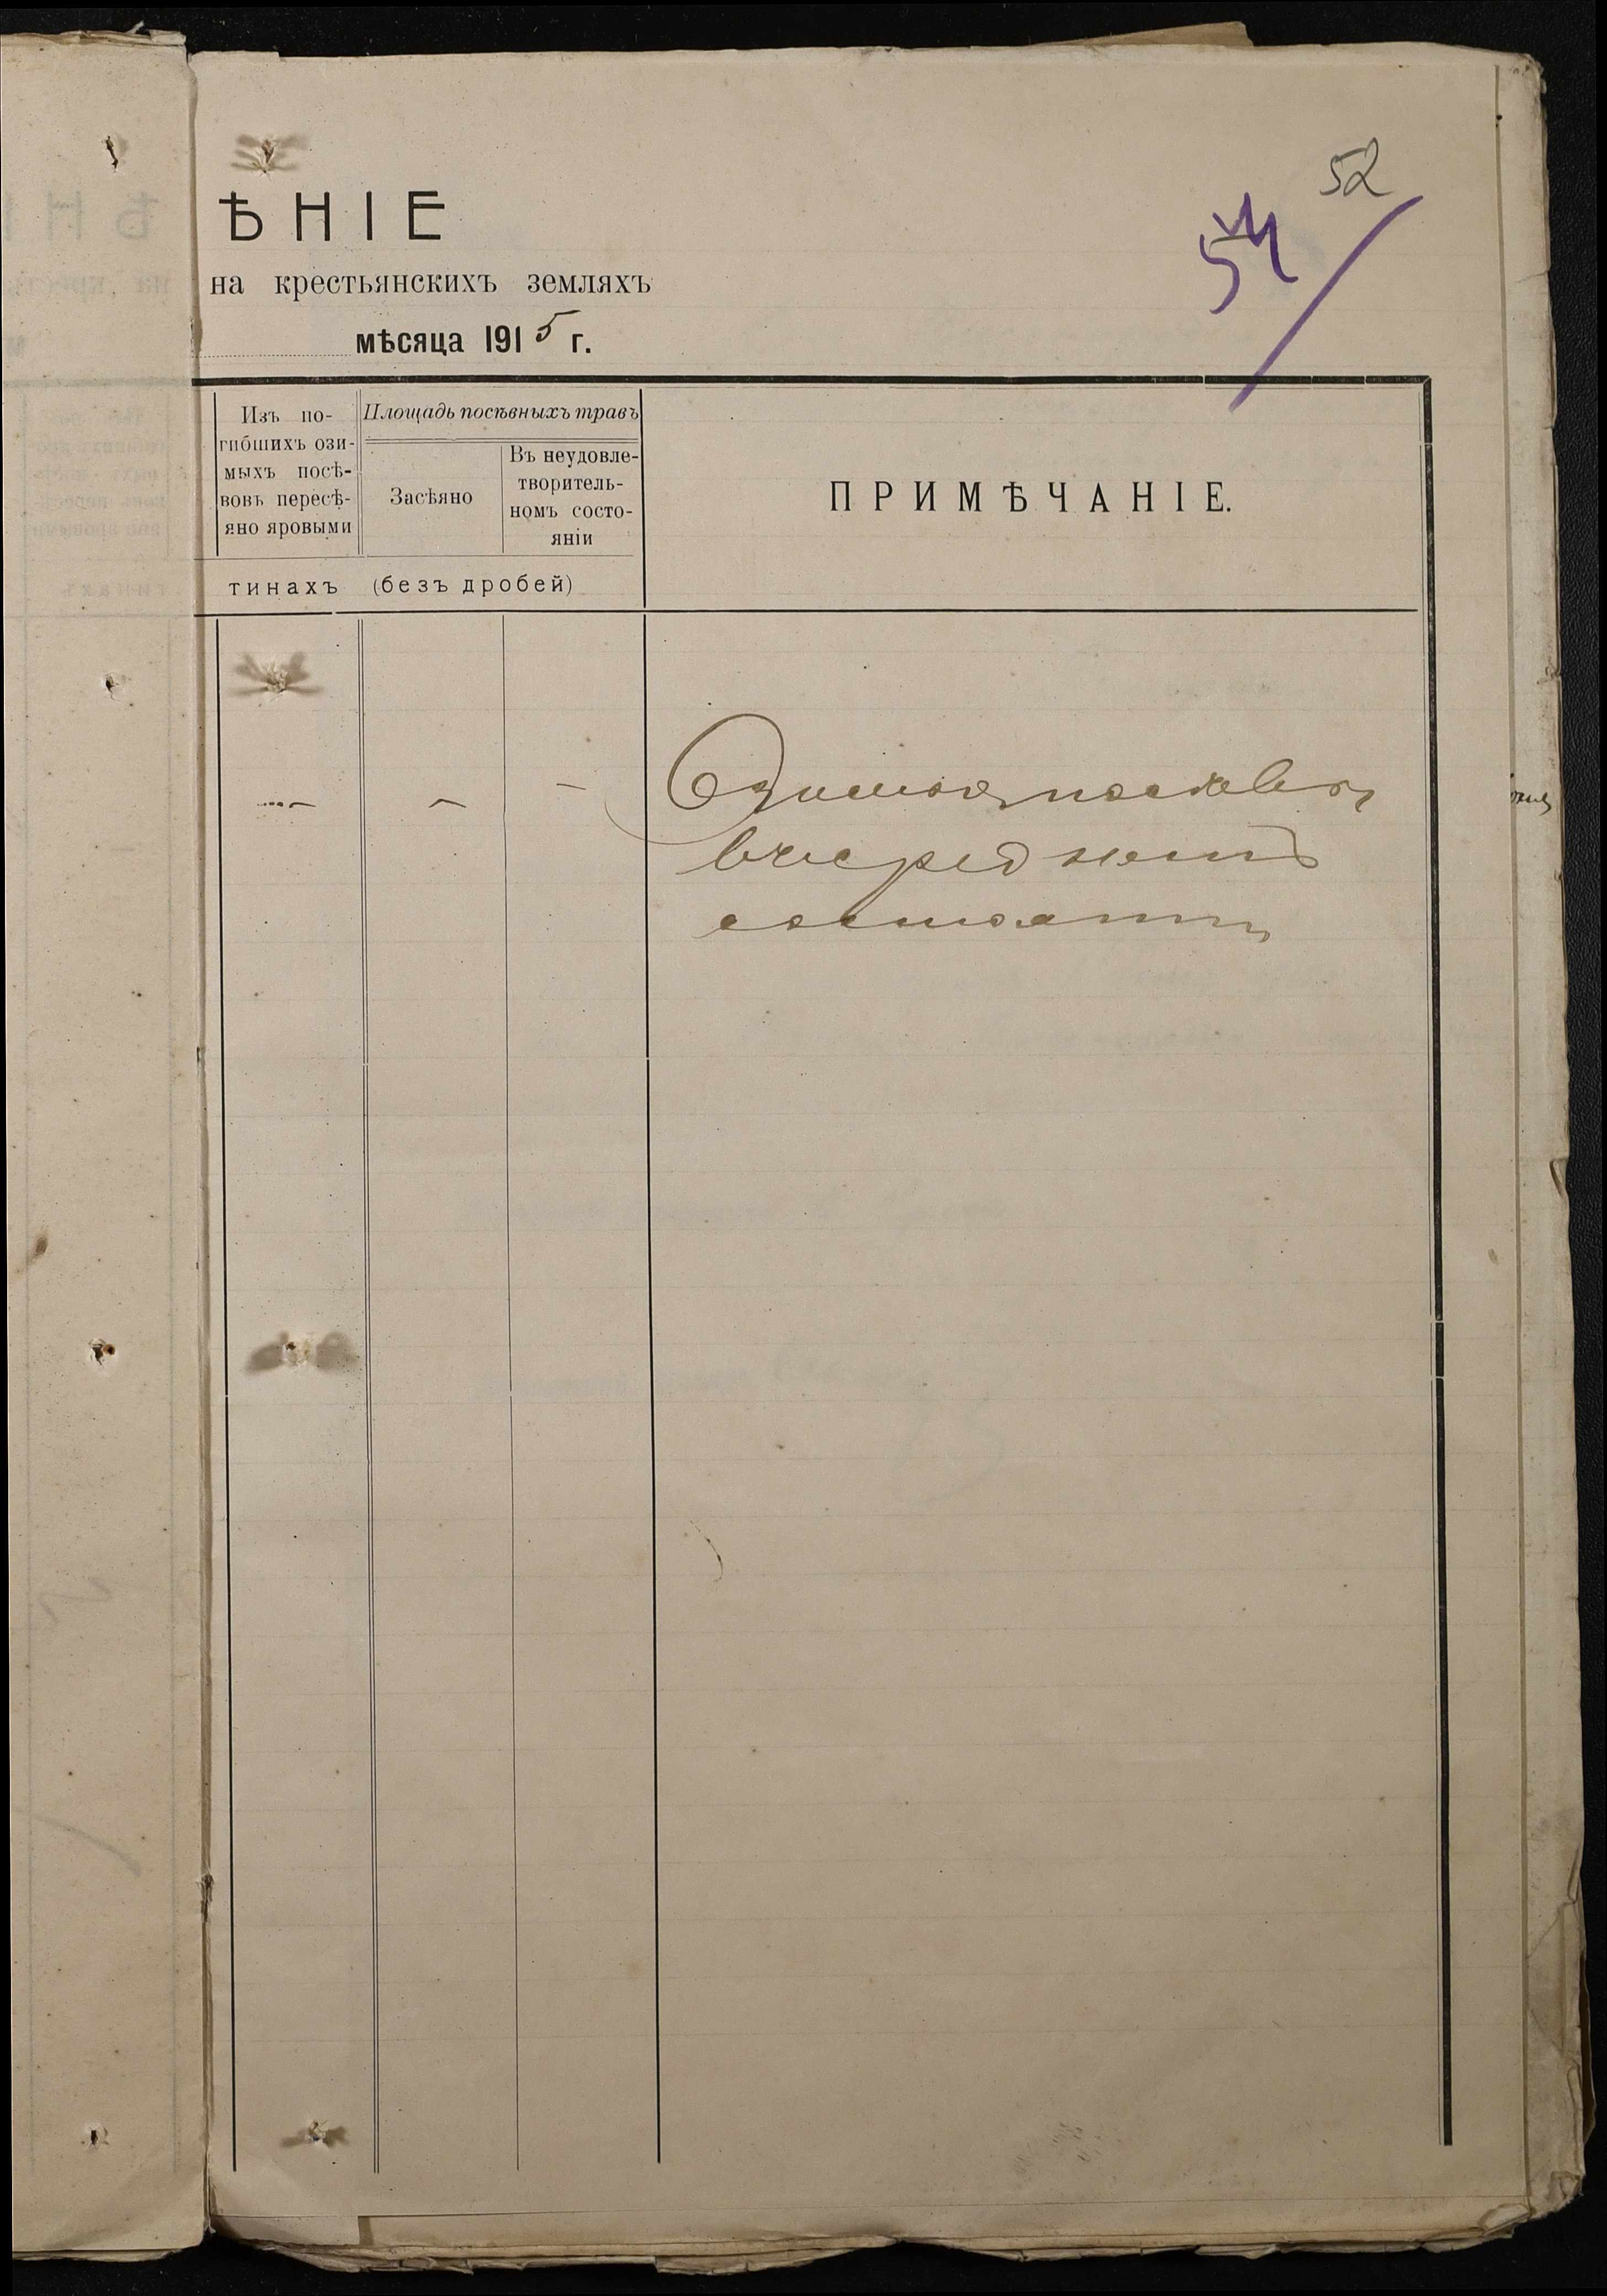 52
54
ѢНІЕ
на крестьянскихъ земляхъ
мѣсяца 1915 г.
Изъ по-
гибшихъ ози-
мыхъ посѣ-
вовъ пересѣ-
яно яровыми
Площадь посѣвныхъ травъ
Засѣяно
Въ неудовле-
творитель-
номъ состо-
яніи
ПРИМѢЧАНІЕ.
тинахъ (безъ дробей)
— — —
Озимыя посевы
в среднемъ
состоянии